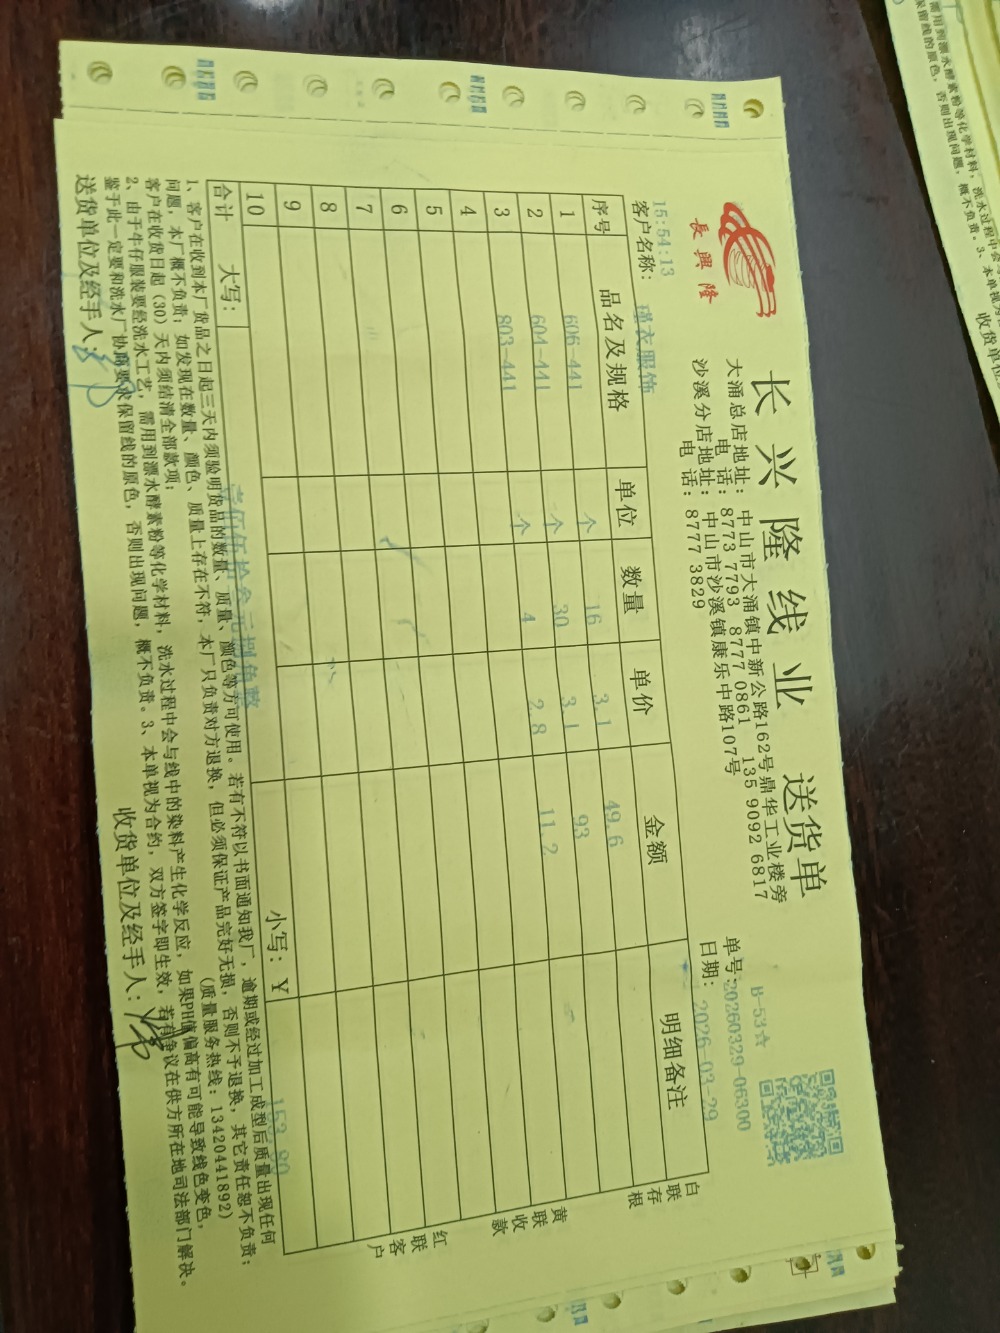 长兴隆线业 送货单
長興隆
大涌总店地址：中山市大涌镇中新公路162号鼎华工业楼旁
电 话：8773 7793 8777 0861 135 9092 6817
沙溪分店地址：中山市沙溪镇康乐中路107号
电 话：8777 3829
B-53☆
单号：20260329-06300
日期：2026-03-29
15:54:13
客户名称：瑾衣服饰
序号 品名及规格 单位 数量 单价 金额 明细备注
1 606-441 个 16 3.1 49.6
2 604-441 个 30 3.1 93
3 803-441 个 4 2.8 11.2
4
5
6
7
8
9
10
合计 大写：壹佰伍拾叁元捌角整 小写：Y 153.80
白联存根
黄联收款
红联客户
1、客户在收到本厂货品之日起三天内须验明货品的数量、质量、颜色等方可使用。若有不符以书面通知我厂，逾期或经过加工成型后质量出现任何
问题，本厂概不负责；如发现在数量、颜色、质量上存在不符，本厂只负责对方退换，但必须保证产品完好无损，否则不予退换，其它责任恕不负责；
客户在收货日起（30）天内须结清全部款项； （质量服务热线：13420441892）
2、由于牛仔服装要经洗水工艺，需用到漂水酵素粉等化学材料，洗水过程中会与线中的染料产生化学反应，如果PH值偏高有可能导致线色变色，
鉴于此一定要和洗水厂协商要求保留线的原色，否则出现问题，概不负责。3、本单视为合约，双方签字即生效，若有争议在供方所在地司法部门解决。
送货单位及经手人： 收货单位及经手人：
需用到漂水酵素粉等化学材料，洗水过程中会
保留线的原色，否则出现问题，概不负责。3、本单视为
收货单位